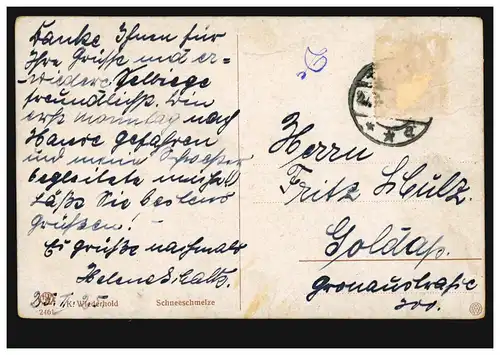 Danke Ihnen für
Ihre Grüße und er-
wiedere Selbige
freundlichst. Bin
erst Monntag nach
Hause gefahren
und mein Schwester
begleitete mich
läßt Sie bestens
grüßen!
Es grüßt nochmals
Helene
K. Wiederhold
Schneeschmelze
Herrn
Fritz Schulz.
Goldap.